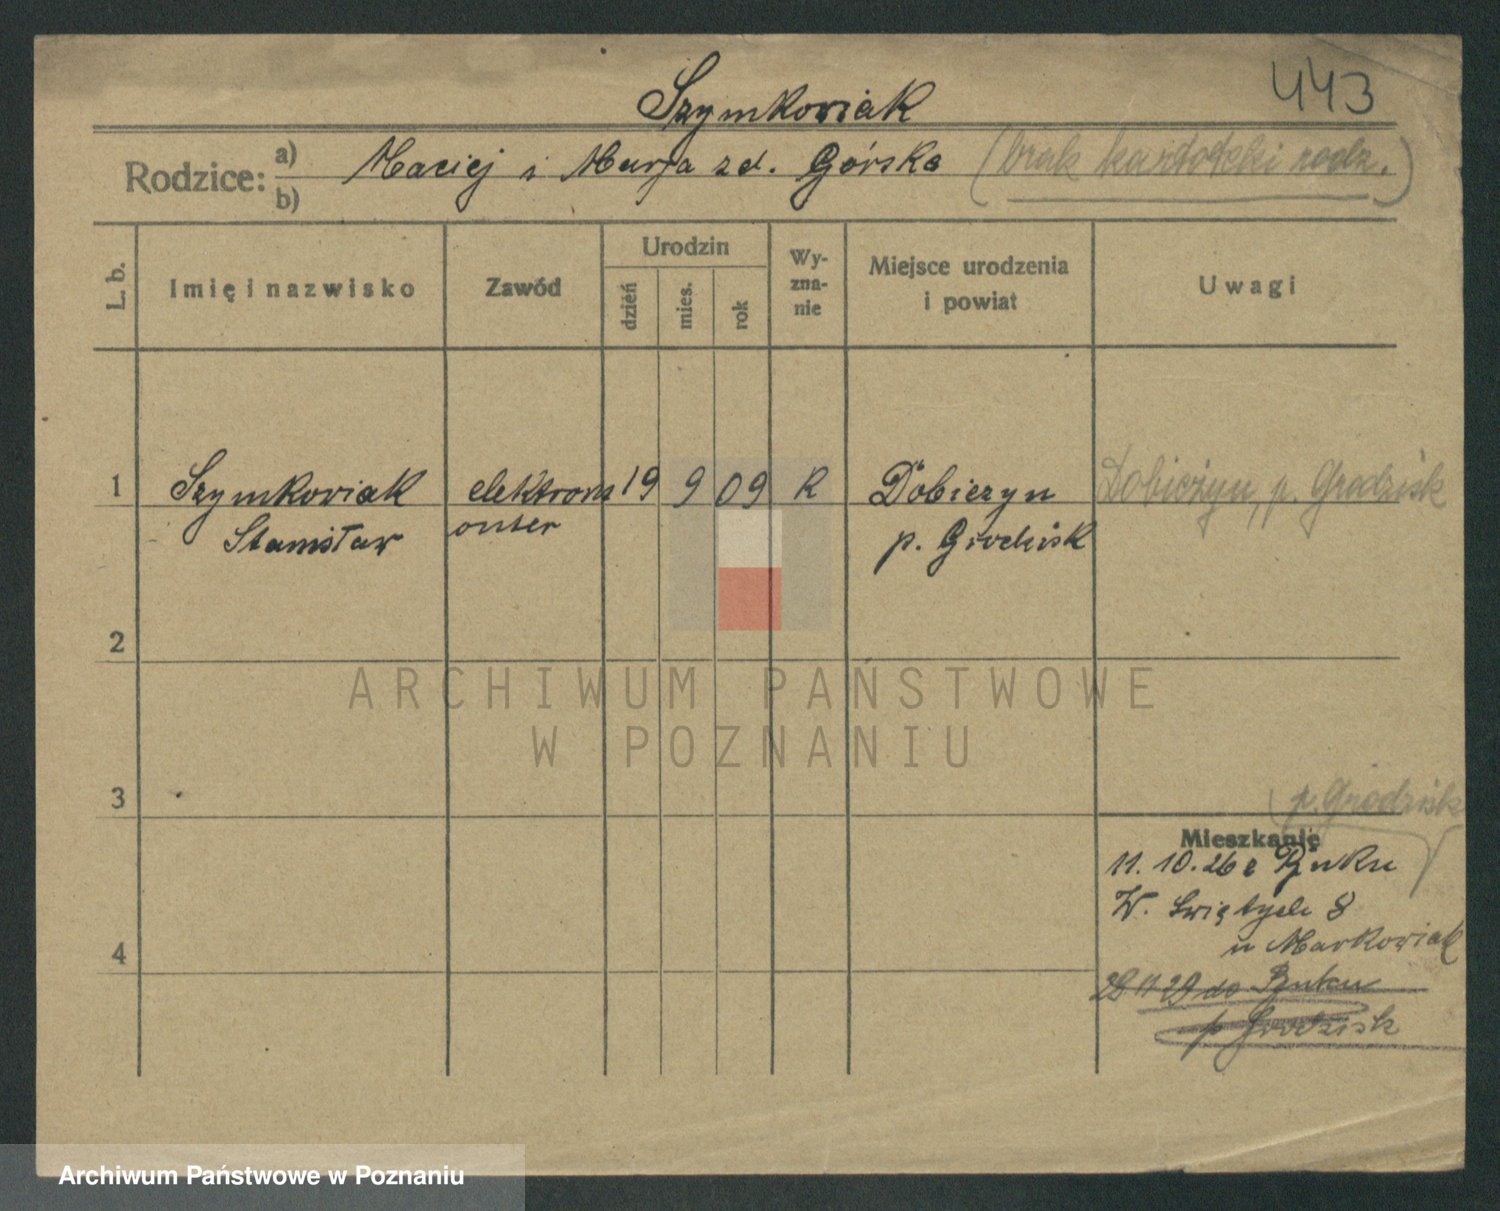 443
Szymkowiak
Rodzice: a) b) Maciej i Marja zd. Górska (brak kartoteki rodz.)
L. b. Imię i nazwisko Zawód Urodzin dzień mies. rok Wy-zna-nie Miejsce urodzenia i powiat Uwagi
1 Szymkowiak elektrom 19 9 09 R Dobieżyn Dobieżyn, p. Grodzisk
Stanisław onter p. Grodzisk
2
ARCHIWUM PAŃSTWOWE
W POZNANIU
3 p. Grodzisk
Mieszkanie
11. 10. 26 z Buku
W. Świętych 8
4 u Markowiak
28 11 29 do Buku
p Grodzisk
Archiwum Państwowe w Poznaniu